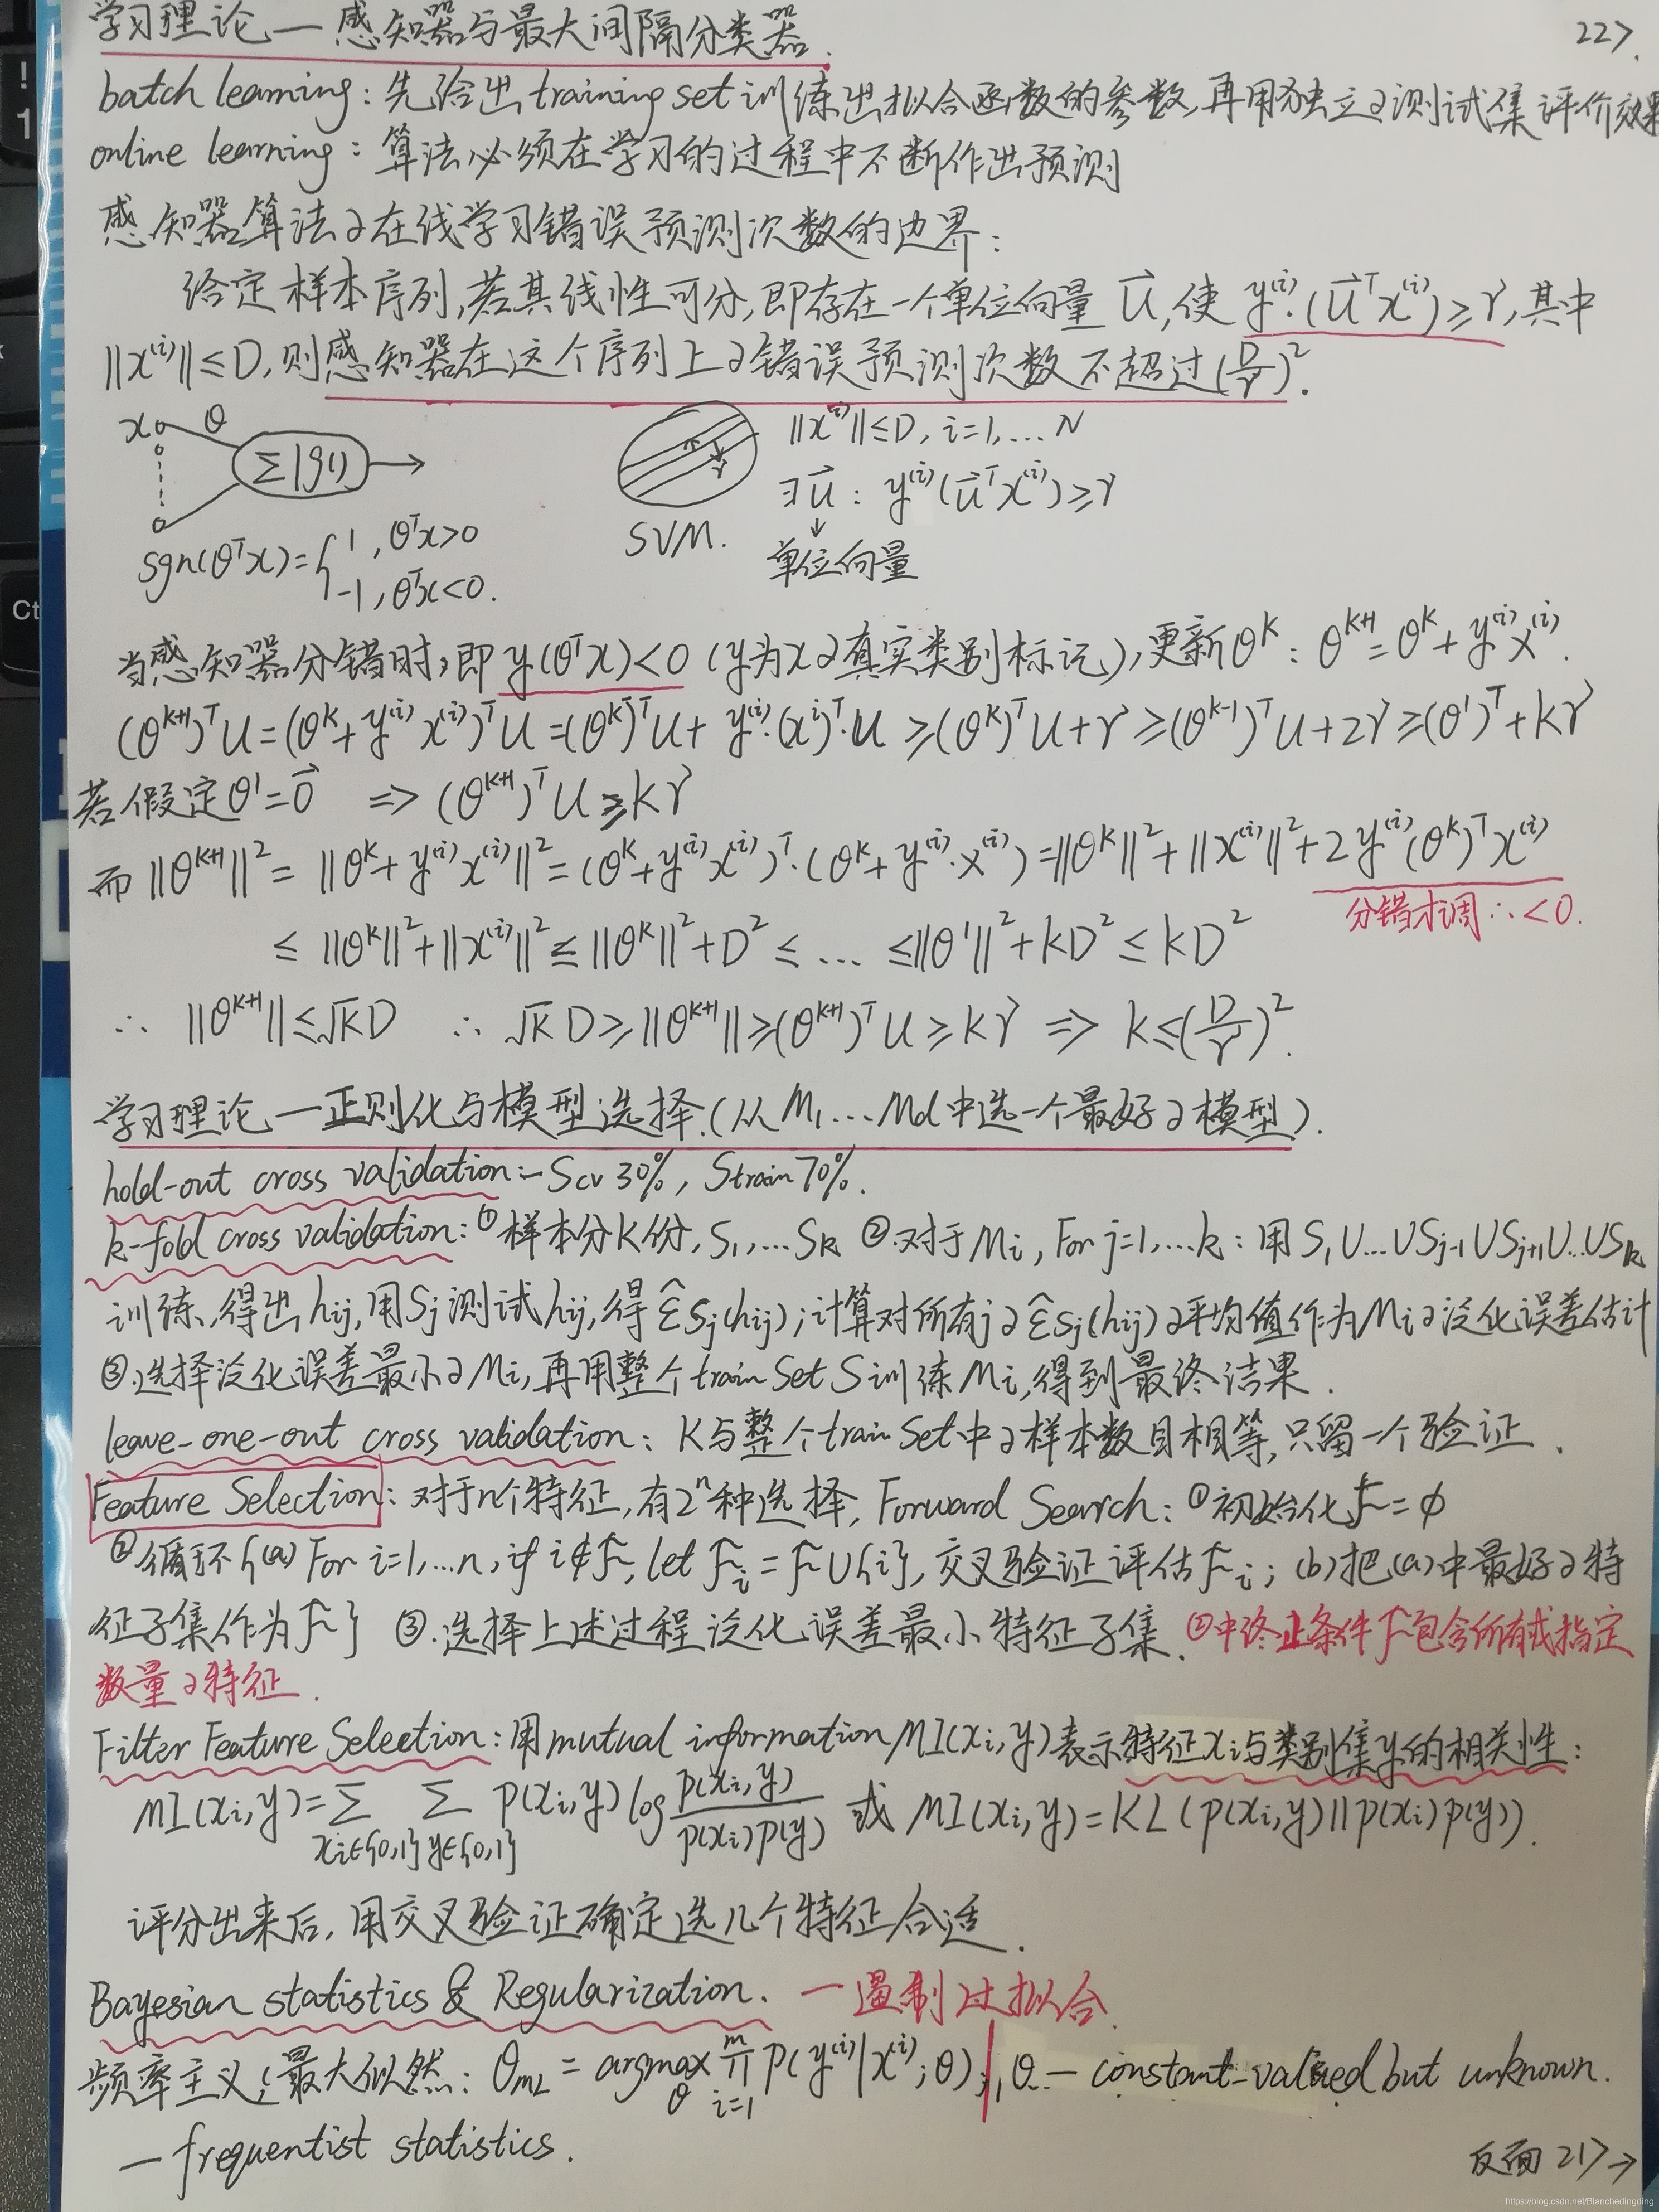 学习理论—感知器与最大间隔分类器.
22>.
batch learning: 先给出training set训练出拟合函数的参数,再用独立的测试集评价效果
online learning: 算法必须在学习的过程中不断作出预测
感知器算法的在线学习错误预测次数的边界:
给定样本序列,若其线性可分,即存在一个单位向量 U⃗,使 y⁽ⁱ⁾·(U⃗ᵀx⁽ⁱ⁾)≥γ,其中
||x⁽ⁱ⁾||≤D,则感知器在这个序列上的错误预测次数不超过(D/γ)².
x θ Σ|g()
||x⁽ⁱ⁾||≤D, i=1,...N
∃U⃗: y⁽ⁱ⁾(U⃗ᵀx⁽ⁱ⁾)≥γ
单位向量
SVM.
sgn(θᵀx)={1, θᵀx>0
-1, θᵀx<0.
当感知器分错时,即y(θᵀx)<0 (y为x的真实类别标记),更新θᴷ: θᴷ⁺¹=θᴷ+y⁽ⁱ⁾x⁽ⁱ⁾.
(θᴷ⁺¹)ᵀU=(θᴷ+y⁽ⁱ⁾x⁽ⁱ⁾)ᵀU=(θᴷ)ᵀU+y⁽ⁱ⁾·(xⁱ)ᵀ·U≥(θᴷ)ᵀU+γ≥(θᴷ⁻¹)ᵀU+2γ≥(θ¹)ᵀ+kγ
若假定θ¹=0⃗ => (θᴷ⁺¹)ᵀU≥kγ
而||θᴷ⁺¹||²=||θᴷ+y⁽ⁱ⁾x⁽ⁱ⁾||²=(θᴷ+y⁽ⁱ⁾x⁽ⁱ⁾)ᵀ·(θᴷ+y⁽ⁱ⁾·x⁽ⁱ⁾)=||θᴷ||²+||x⁽ⁱ⁾||²+2y⁽ⁱ⁾(θᴷ)ᵀx⁽ⁱ⁾
分错才调∴<0.
≤||θᴷ||²+||x⁽ⁱ⁾||²≤||θᴷ||²+D²≤...≤||θ¹||²+kD²≤kD²
∴ ||θᴷ⁺¹||≤√kD ∴ √kD≥||θᴷ⁺¹||≥(θᴷ⁺¹)ᵀU≥kγ => k≤(D/γ)².
学习理论—正则化与模型选择.(从M₁...Md中选一个最好的模型).
hold-out cross validation:-Scv 30%, Strain 70%.
k-fold cross validation: ①样本分K份,S₁,...Sk ②对于Mi, For j=1,...k: 用S₁∪...∪Sj-1∪Sj+1∪...∪Sk
训练,得出hij,用Sj测试hij,得ε̂Sj(hij);计算对所有j的ε̂Sj(hij)的平均值作为Mi的泛化误差估计
③选择泛化误差最小的Mi,再用整个train set S训练Mi,得到最终结果.
leave-one-out cross validation: K与整个train set中的样本数目相等,只留一个验证.
Feature Selection: 对于n个特征,有2ⁿ种选择, Forward Search: ①初始化F=∅
②循环{(a) For i=1,...n, if i∉F, let Fi=F∪{i},交叉验证评估Fi; (b)把(a)中最好的特
征子集作为F} ③.选择上述过程泛化误差最小特征子集. ②中终止条件F包含所有或指定
数量的特征.
Filter Feature Selection: 用mutual information MI(xi,y)表示特征xi与类别集y的相关性:
MI(xi,y)=Σxi∈{0,1} Σy∈{0,1} p(xi,y) log p(xi,y)/p(xi)p(y) 或 MI(xi,y)=KL(p(xi,y)||p(xi)p(y)).
评分出来后,用交叉验证确定选几个特征合适.
Bayesian statistics & Regularization. —遏制过拟合.
频率主义:最大似然: θML = argmaxθ ∏ᵢ₌₁ᵐ p(y⁽ⁱ⁾|x⁽ⁱ⁾;θ), θ — constant-valued but unknown.
— frequentist statistics.
反面21>→
https://blog.csdn.net/Blanchedingding